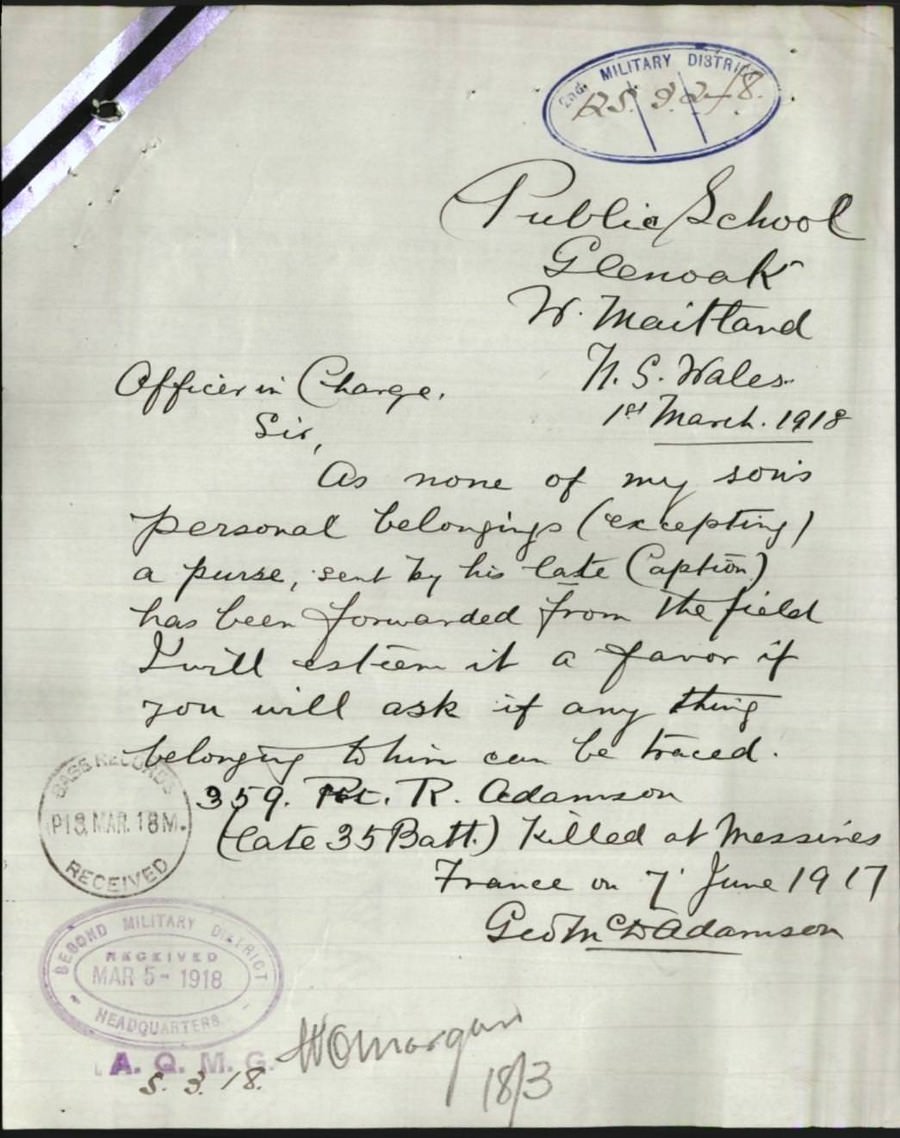 2nd. MILITARY DISTRICT
Public School
Glenoak
W. Maitland
N. S. Wales
1st March. 1918
Officer in Charge.
Sir,
As none of my sons
personal belongings (excepting)
a purse, sent by his late Caption)
has been forwarded from the field
I will esteem it a favor if
you will ask if any thing
belonging to him can be traced.
359. Pvt. R. Adamson
(late 35 Batt.) Killed at Messines
France on 7' June 1917
Geo McD Adamson
BASE RECORDS
MAR. 18
RECEIVED
SECOND MILITARY DISTRICT
RECEIVED
MAR 5 - 1918
HEADQUARTERS
A. Q. M. G.
5. 3. 18.
Morgan
18/3